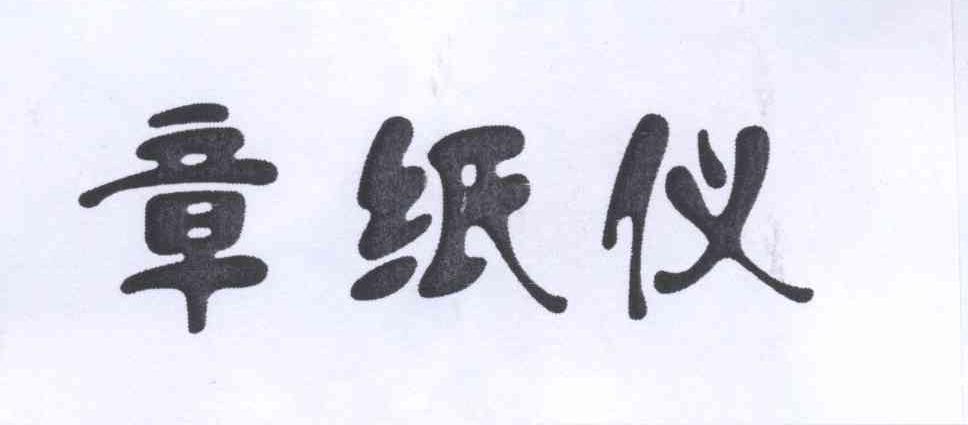 章纸仪